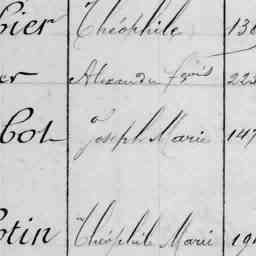 bier Théophile 130
er Alexandre frçois 223
bot Joseph Marie 147
otin Théophile Marie 191